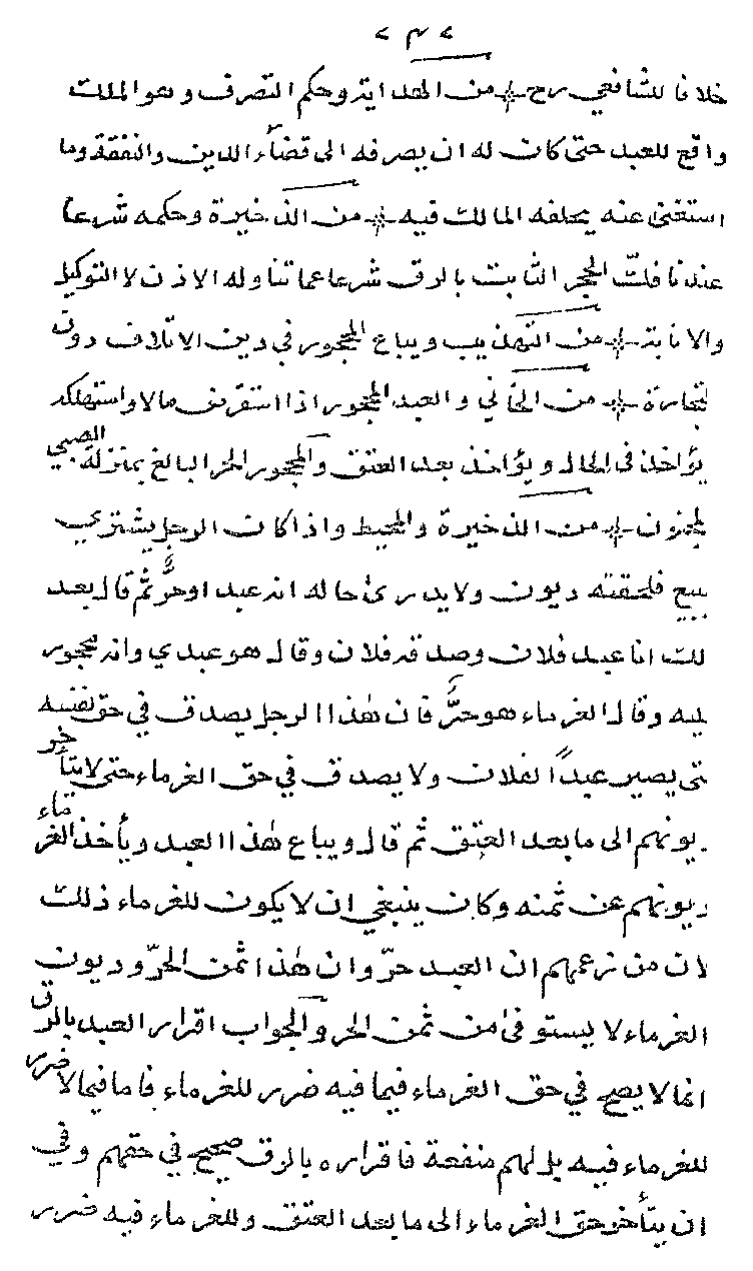 خلافا للشافعي رح * من الهداية وحكم التصرف وهو الملك
واقع للعبد حتى كان له ان يصرفه الى قضاء الدين والنفقة وما
استغنى عنه يخلفه المالك فيه * من الذخيرة وحكمه شرعا
عندنا فك الحجر الثابت بالرق شرعا عما تناوله الاذن لا التوكيل
والانابة * من التهذيب ويباع المحجور في دين الاتلاف دون
لتجارة * من الخاني والعبد المحجور اذا استقرض مالا واستهلكه
يؤاخذ في الحال ويؤاخذ بعد العتق والمحجور الحر البالغ بمنزلة الصبي
لمجنون * من الذخيرة والمحيط واذا كان الرجل يشتري
يبيع فلحقته ديون ولا يدرى حاله انه عبد او حرٌّ ثم قال بعد
لك انا عبد فلان وصدقه فلان وقال هو عبدي وانه محجور
ليه وقال الغرماء هو حرٌّ فان هذا الرجل يصدق في حق نفسه
تى يصير عبدًا لفلان ولا يصدق في حق الغرماء حتى لا يتأخر
ديونهم الى ما بعد العتق ثم قال ويباع هذا العبد ويأخذ الغرماء
ديونهم عن ثمنه وكان ينبغي ان لا يكون للغرماء ذلك
لان من زعمهم ان العبد حرّ وان هذا ثمن الحرّ وديون
الغرماء لا يستوفى من ثمن الحر والجواب اقرار العبد بالرق
انما لا يصح في حق الغرماء فيما فيه ضرر للغرماء فاما فيما لا ضرر
للغرماء فيه بل لهم منفعة فاقراره بالرق صحيح في حقهم وفي
ان يتأخر حق الغرماء الى ما بعد العتق وللغرماء فيه ضرر